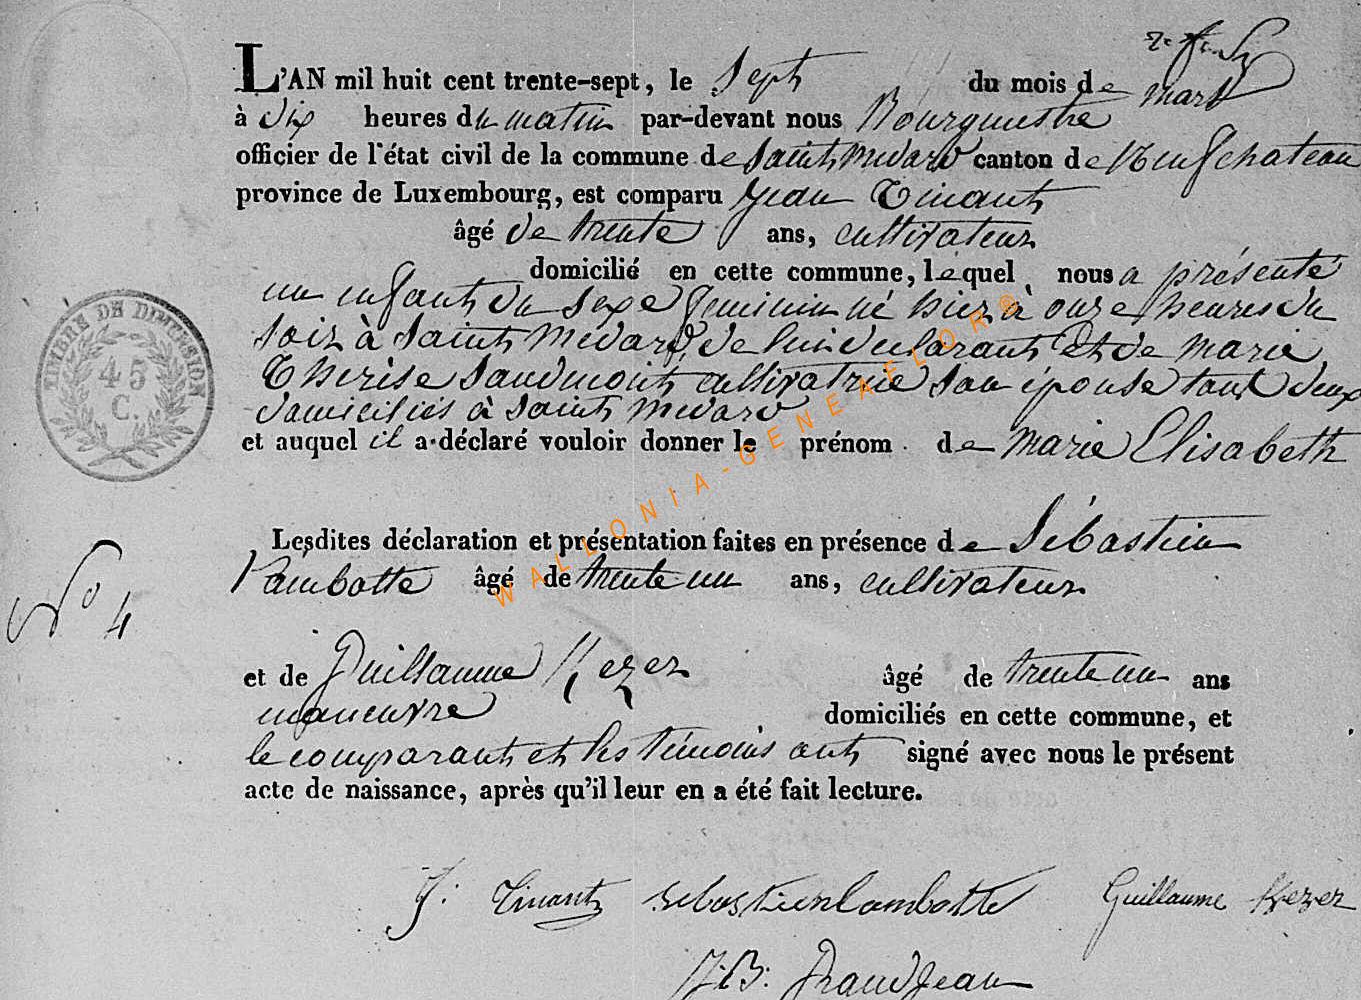 L'AN mil huit cent trente-sept, le sept du mois de mars
à dix heures du matin par-devant nous Bourgmestre
officier de l'état civil de la commune de Saint Medard canton de Neufchateau
province de Luxembourg, est comparu Jean Tinant
âgé de trente ans, cultivateur
domicilié en cette commune, lequel nous a présenté
un enfant du sexe feminin né hier à onze heures du
soir à Saint Medard, de lui declarant Et de Marie
Therese Saudmont cultivatrice son épouse tous deux
domiciliés à Saint Medard
et auquel il a déclaré vouloir donner le prénom de Marie Elisabeth
Lesdites déclaration et présentation faites en présence de Sébastien
Lambotte âgé de trente un ans, cultivateur
N° 4
et de Guillaume Kezer âgé de trente un ans
manœuvre domiciliés en cette commune, et
le comparant et les témoins ont signé avec nous le présent
acte de naissance, après qu'il leur en a été fait lecture.
J. Tinant Sebastien Lambotte Guillaume Kezer
J.B. Grandjean
TIMBRE DE DIMENSION
45
C.
WALLONIA-GENEAFLOR®